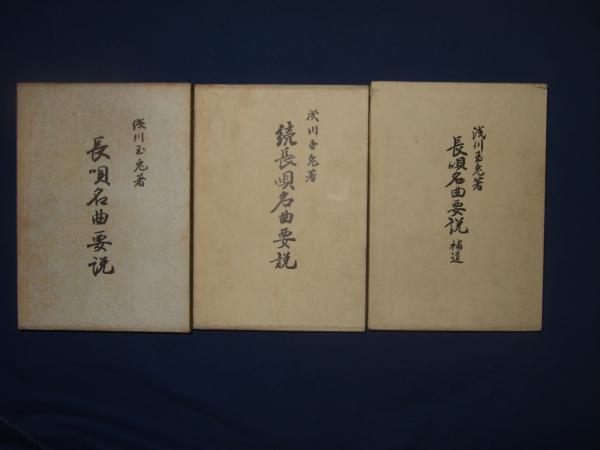 浅川玉兎著
長唄名曲要説
浅川玉兎著
続長唄名曲要説
浅川玉兎著
長唄名曲要説 補遺